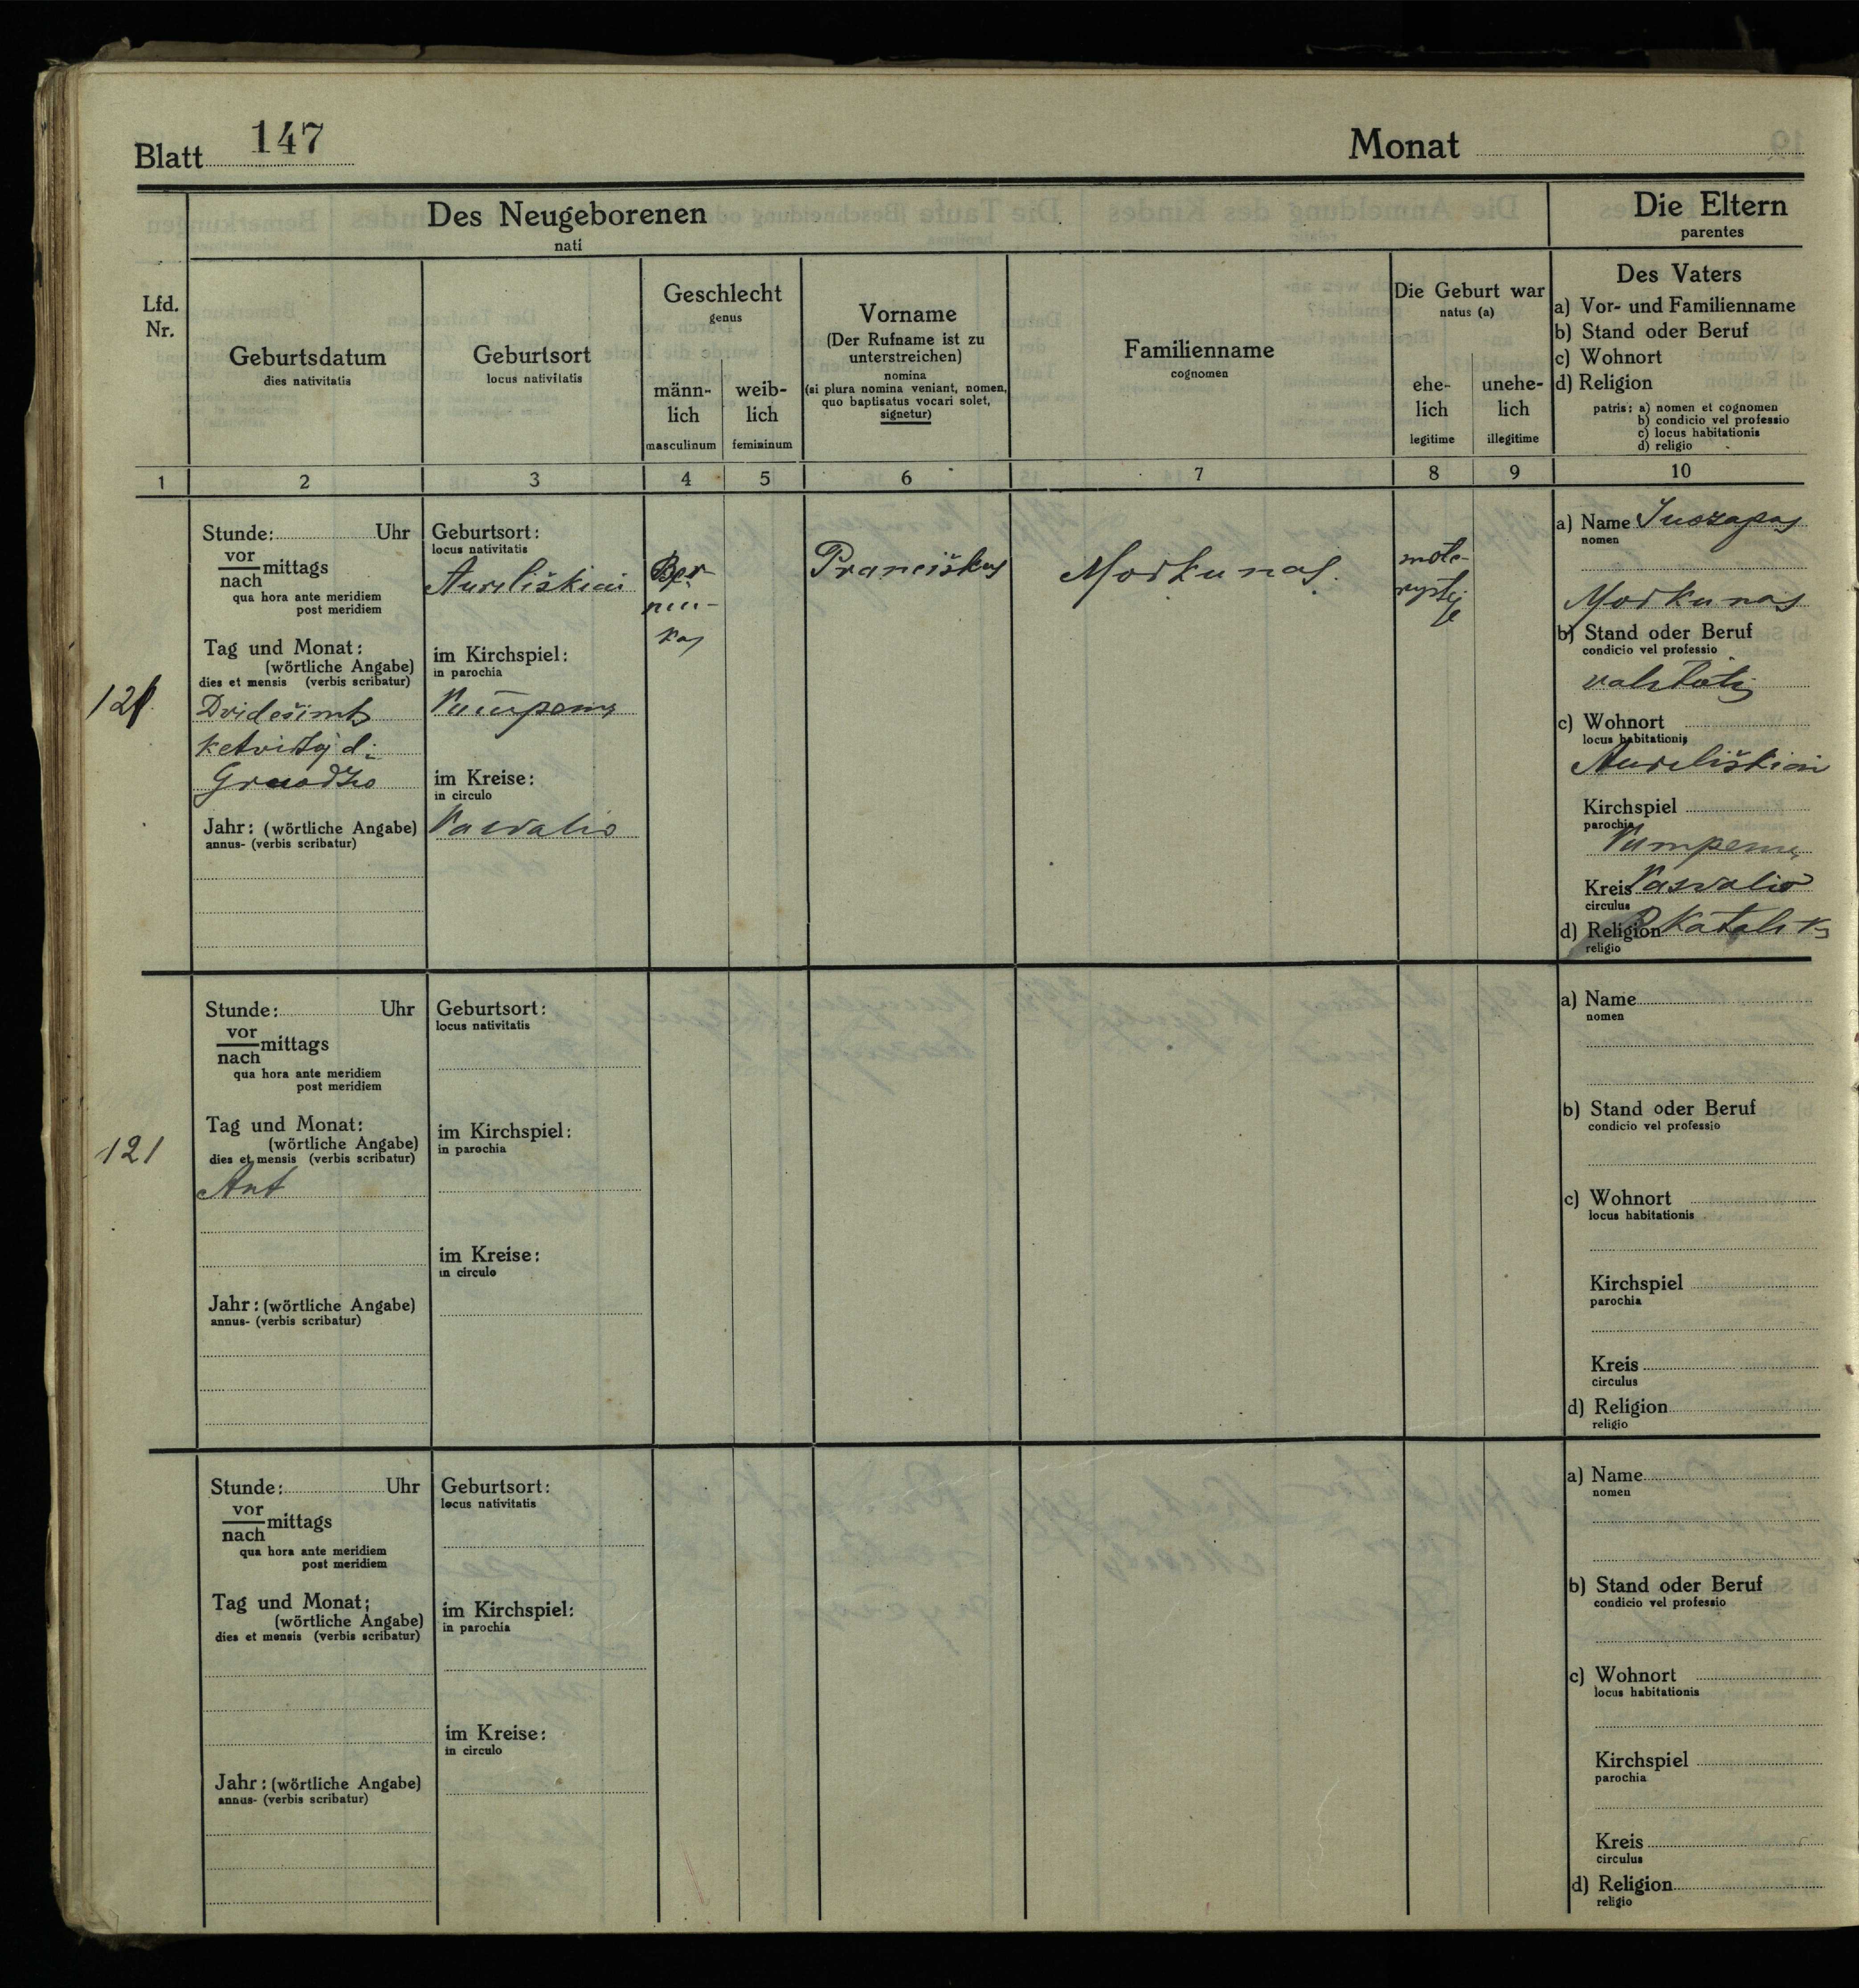 Blatt 147
Monat
Des Neugeborenen
nati
Die Eltern
parentes
Lfd.
Nr.
Geburtsdatum
dies nativitatis
Geburtsort
locus nativitatis
Geschlecht
genus
männ-
lich
masculinum
weib-
lich
femininum
Vorname
(Der Rufname ist zu
unterstreichen)
nomina
(si plura nomina veniant, nomen,
quo baptisatus vocari solet,
signetur)
Familienname
cognomen
Die Geburt war
natus (a)
ehe-
lich
legitime
unehe-
lich
illegitime
Des Vaters
a) Vor- und Familienname
b) Stand oder Beruf
c) Wohnort
d) Religion
patris: a) nomen et cognomen
b) condicio vel professio
c) locus habitationis
d) religio
1 2 3 4 5 6 7 8 9 10
Stunde: Uhr
vor
nach mittags
qua hora ante meridiem
post meridiem
Tag und Monat:
(wörtliche Angabe)
dies et mensis (verbis scribatur)
Dvidešimts
ketvirtoj d.
Gruodžio
Jahr: (wörtliche Angabe)
annus- (verbis scribatur)
Geburtsort:
locus nativitatis
Aureliškiai
im Kirchspiel:
in parochia
Pumpenų
im Kreise:
in circulo
Pasvalio
Ber-
niu-
kas
Pranciškus
Morkunas.
mote-
rystėj
a) Name Juozapas
nomen
Morkunas
b) Stand oder Beruf
condicio vel professio
valstiētis
c) Wohnort
locus habitationis
Aureliškiai
Kirchspiel
parochia
Pumpenų
Kreis Pasvalio
circulus
d) Religion R Katalikas
religio
121
Stunde: Uhr
vor
nach mittags
qua hora ante meridiem
post meridiem
Tag und Monat:
(wörtliche Angabe)
dies et mensis (verbis scribatur)
Ant
Jahr: (wörtliche Angabe)
annus- (verbis scribatur)
Geburtsort:
locus nativitatis
im Kirchspiel:
in parochia
im Kreise:
in circulo
a) Name
nomen
b) Stand oder Beruf
condicio vel professio
c) Wohnort
locus habitationis
Kirchspiel
parochia
Kreis
circulus
d) Religion
religio
Stunde: Uhr
vor
nach mittags
qua hora ante meridiem
post meridiem
Tag und Monat:
(wörtliche Angabe)
dies et mensis (verbis scribatur)
Jahr: (wörtliche Angabe)
annus- (verbis scribatur)
Geburtsort:
locus nativitatis
im Kirchspiel:
in parochia
im Kreise:
in circulo
a) Name
nomen
b) Stand oder Beruf
condicio vel professio
c) Wohnort
locus habitationis
Kirchspiel
parochia
Kreis
circulus
d) Religion
religio